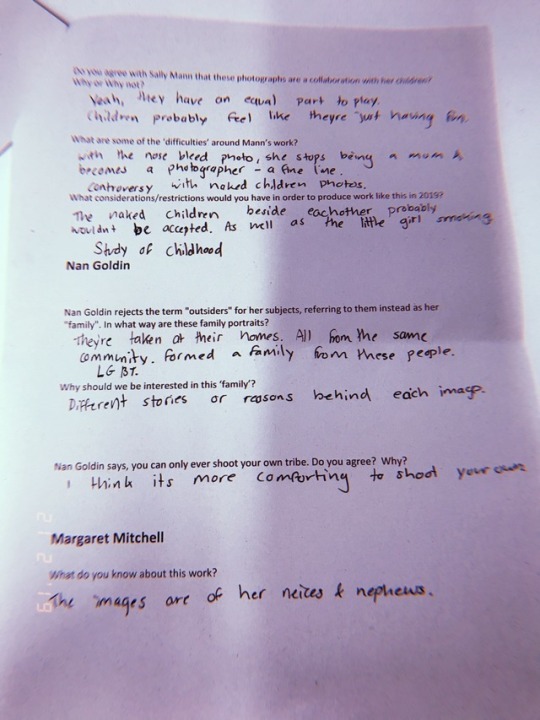 Do you agree with Sally Mann that these photographs are a collaboration with her children?
Why or Why not?
Yeah, they have an equal part to play.
Children probably feel like theyre just having fun.
What are some of the 'difficulties' around Mann's work?
with the nose bleed photo, she stops being a mum &
becomes a photographer - a fine line.
controversy with naked children photos.
What considerations/restrictions would you have in order to produce work like this in 2019?
The naked children beside eachother probably
wouldnt be accepted. As well as the little girl smoking
Study of childhood
Nan Goldin
Nan Goldin rejects the term "outsiders" for her subjects, referring to them instead as her
"family". In what way are these family portraits?
They're taken at their homes. All from the same
community. formed a family from these people.
LGBT.
Why should we be interested in this 'family'?
Different stories or reasons behind each image.
Nan Goldin says, you can only ever shoot your own tribe. Do you agree? Why?
I think its more comforting to shoot your own
Margaret Mitchell
What do you know about this work?
The images are of her neices & nephews.